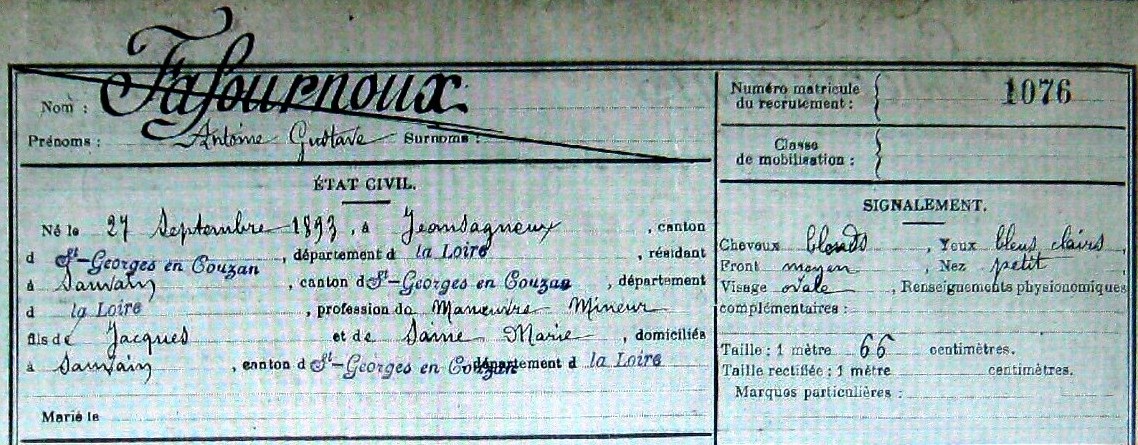 Nom : Fafournoux
Prénoms : Antoine Gustave Surnoms :
Numéro matricule
du recrutement : 1076
Classe
de mobilisation :
ÉTAT CIVIL.
Né le 27 Septembre 1893, à Jeansagneux, canton
d St-Georges en Couzan, département d la Loire, résidant
à Sauvain, canton d St-Georges en Couzan, département
d la Loire, profession de Manœuvre Mineur
fils de Jacques et de Saine Marie, domiciliés
à Sauvain, canton d St-Georges en Couzan département d la Loire
Marié le
SIGNALEMENT.
Cheveux blonds, Yeux bleus clairs,
Front moyen, Nez petit,
Visage ovale, Renseignements physionomiques
complémentaires :
Taille : 1 mètre 66 centimètres.
Taille rectifiée : 1 mètre centimètres.
Marques particulières :